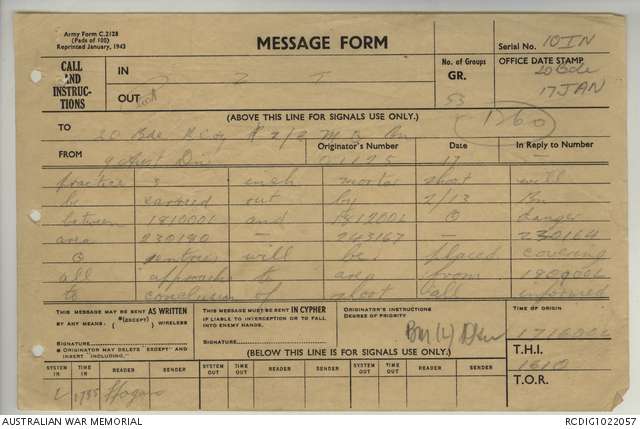 Army Form C.2128
(Pads of 100)
Reprinted January, 1943
MESSAGE FORM
Serial No. 10IN
CALL AND INSTRUCTIONS
IN
OUT
No. of Groups
GR.
53
OFFICE DATE STAMP
20 Bde
17 JAN
(ABOVE THIS LINE FOR SIGNALS USE ONLY.)
TO 20 Bde 2/2 M G Bn
FROM 9 Aust Div
Originator's Number
Date 17
In Reply to Number
practice 3 inch mortar shoot will
be carried out by 2/13 Bn
between and danger
area 230180 — 243167 — 230164
sentries will be placed covering
all approaches to area from
to conclusion of shoot all informed
THIS MESSAGE MAY BE SENT AS WRITTEN
BY ANY MEANS. (*EXCEPT) WIRELESS
SIGNATURE
* ORIGINATOR MAY DELETE "EXCEPT" AND
INSERT "INCLUDING."
THIS MESSAGE MUST BE SENT IN CYPHER
IF LIABLE TO INTERCEPTION OR TO FALL
INTO ENEMY HANDS.
SIGNATURE
ORIGINATOR'S INSTRUCTIONS
DEGREE OF PRIORITY
(BELOW THIS LINE IS FOR SIGNALS USE ONLY.)
TIME OF ORIGIN
T.H.I.
1810
T.O.R.
SYSTEM IN TIME IN READER SENDER SYSTEM OUT TIME OUT READER SENDER SYSTEM OUT TIME OUT READER SENDER
AUSTRALIAN WAR MEMORIAL
RCDIG1022057